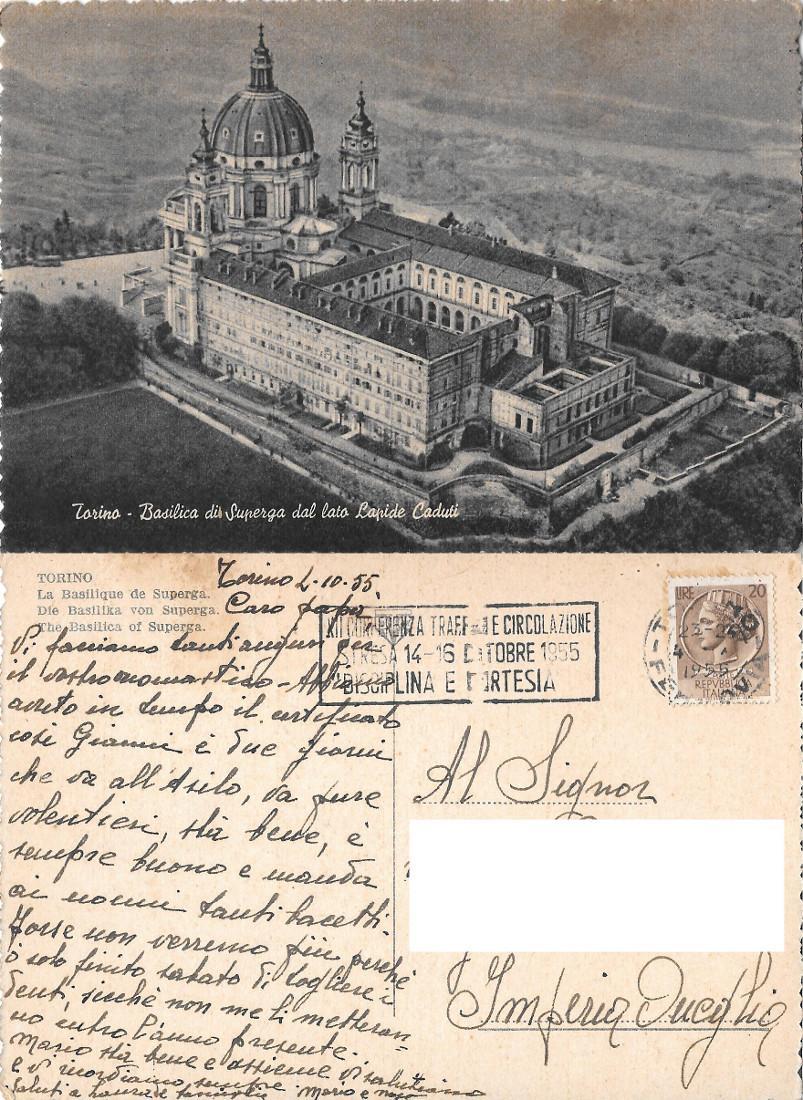 Torino - Basilica di Superga dal lato Lapide Caduti
TORINO
La Basilique de Superga.
Die Basilika von Superga.
The Basilica of Superga.
Torino 2-10-55
Caro papà
Vi facciamo tanti auguri per
il vostro onomastico - Abbiamo
avuto in tempo il certificato
così Gianni è due giorni
che va all'Asilo, va pure
volentieri, stà bene, è
sempre buono e manda
ai nonni tanti bacetti.
Forse non verremo più perchè
ò solo finito sabato di togliere i
denti, sicchè non me li metteran=
no entro l'anno presente.
Mario stà bene e assieme vi salutiamo
e vi ricordiamo sempre
Saluti a Laura e famiglia Mario e
XII CONFERENZA TRAFF E CIRCOLAZIONE
STRESA 14-16 OTTOBRE 1955
"DISCIPLINA E CORTESIA
LIRE 20
1955
REPUBBLICA
ITALIANA
Al Signor
Imperia Oneglia